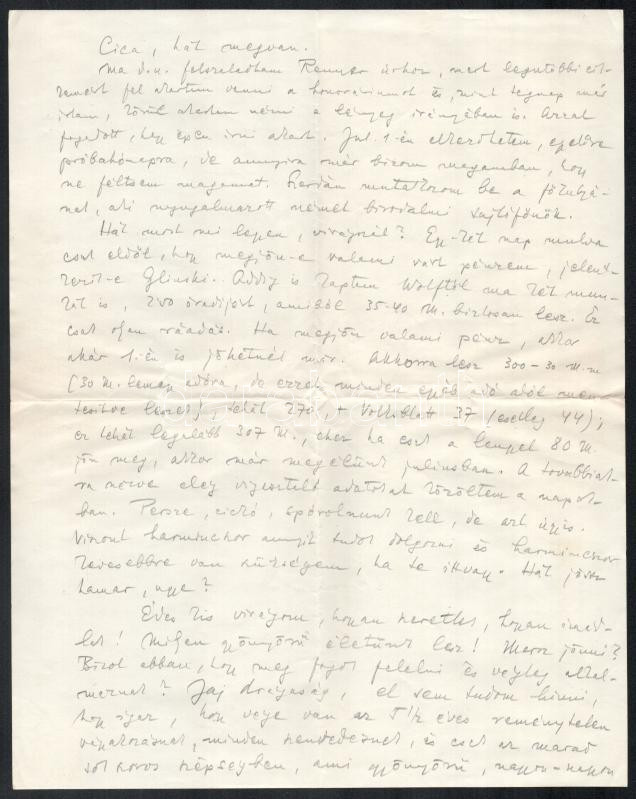 Cica, hát megvan.
Ma d.u. felszaladtam Renner úrhoz, mert legutóbbi
fel akartam venni a honoráriumot és, mint tegnap már
írtam, akartam némi a lényeg irányában is. Azzal
fogadott, hogy épen írni akart. Jul. 1-én elkezdhetem, egelőre
próbahónapra, de annyira már bízom magamban, hogy
ne féltsem magamat. Szerdán mutatkozom be a
nak, aki nyugalmazott német birodalmi sajtófőnök.
Hát most mi legyen, virágszál? Egy-két nap mulva
csak eldől, hogy megjön-e valami várt pénzem, jelent-
kezik-e Glinski. Addig is kaptam Wolftól ma két mun-
kát is, 200 oradíjért, amiből 35-40 M. biztosan lesz. Ez
csak olyan ráadás. Ha megjön valami pénz, akkor
akár 1.-én is jöhetnél már. Akkorra lesz 300-30 M.
(30 M. lemegy adóra, de ezzel minden egyéb adó alól men-
tesítve leszek), tehát 270, + Volksblatt 37 (esetleg 44);
ez tehát legalább 307 M., ehez ha csak a lengyel 80 M.
jön meg, akkor már megélünk juliusban. A továbbiak-
ra nézve elég vigasztaló adatokat közöltem a napok-
ban. Persze, cickó, spórolnunk kell, de azt úgyis.
Viszont harmincszor annyit tudok dolgozni és harmincszor
kevesebbre van szükségem, ha te itt vagy. Hát jössz
hamar, ugye?
Édes kis virágom, hogyan szeretlek, hogyan imád-
lak! Milyen gyönyörű életünk lesz! Mersz jönni?
Bízol abban, hogy meg fogok felelni és végleg alkal-
maznak? Jaj drágaság, el sem tudom hinni,
hogy igaz, hogy vége van az 5 1/2 éves reménytelen
várakozásnak, minden szenvedésnek, és csak az marad
sok szépségben, ami gyönyörű, nagyon-nagyon